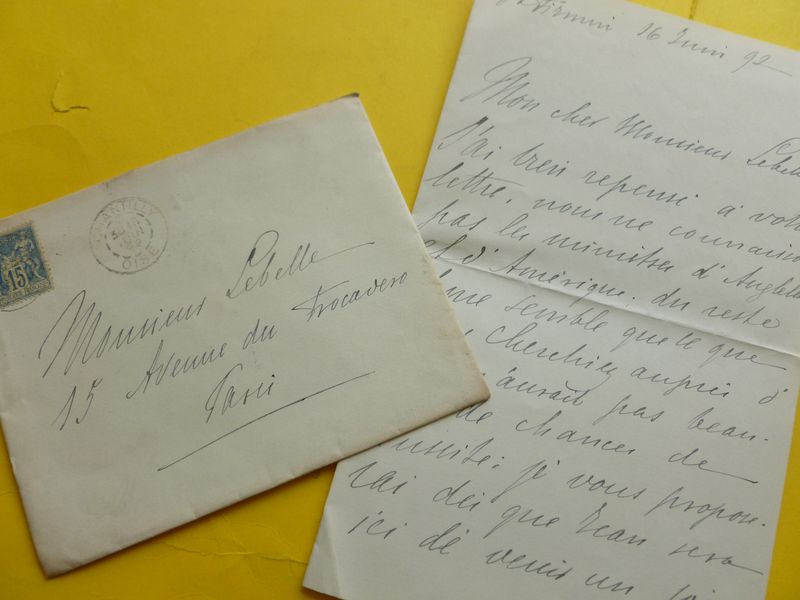 CHANTILLY
OISE
15
Monsieur Lebelle
15 Avenue du Trocadero
Paris
St Firmin 16 Juin 92
Mon cher Monsieur Lebelle
J'ai bien repensé à votre
lettre, nous ne connaissons
pas les ministres d'Anglet
et d'Amérique. du reste
me semble que ce que
cherchiez auprès d'
n'aurait pas beau-
de chances de
ussite; je vous propose-
rai dès que Jean sera
ici de venir un